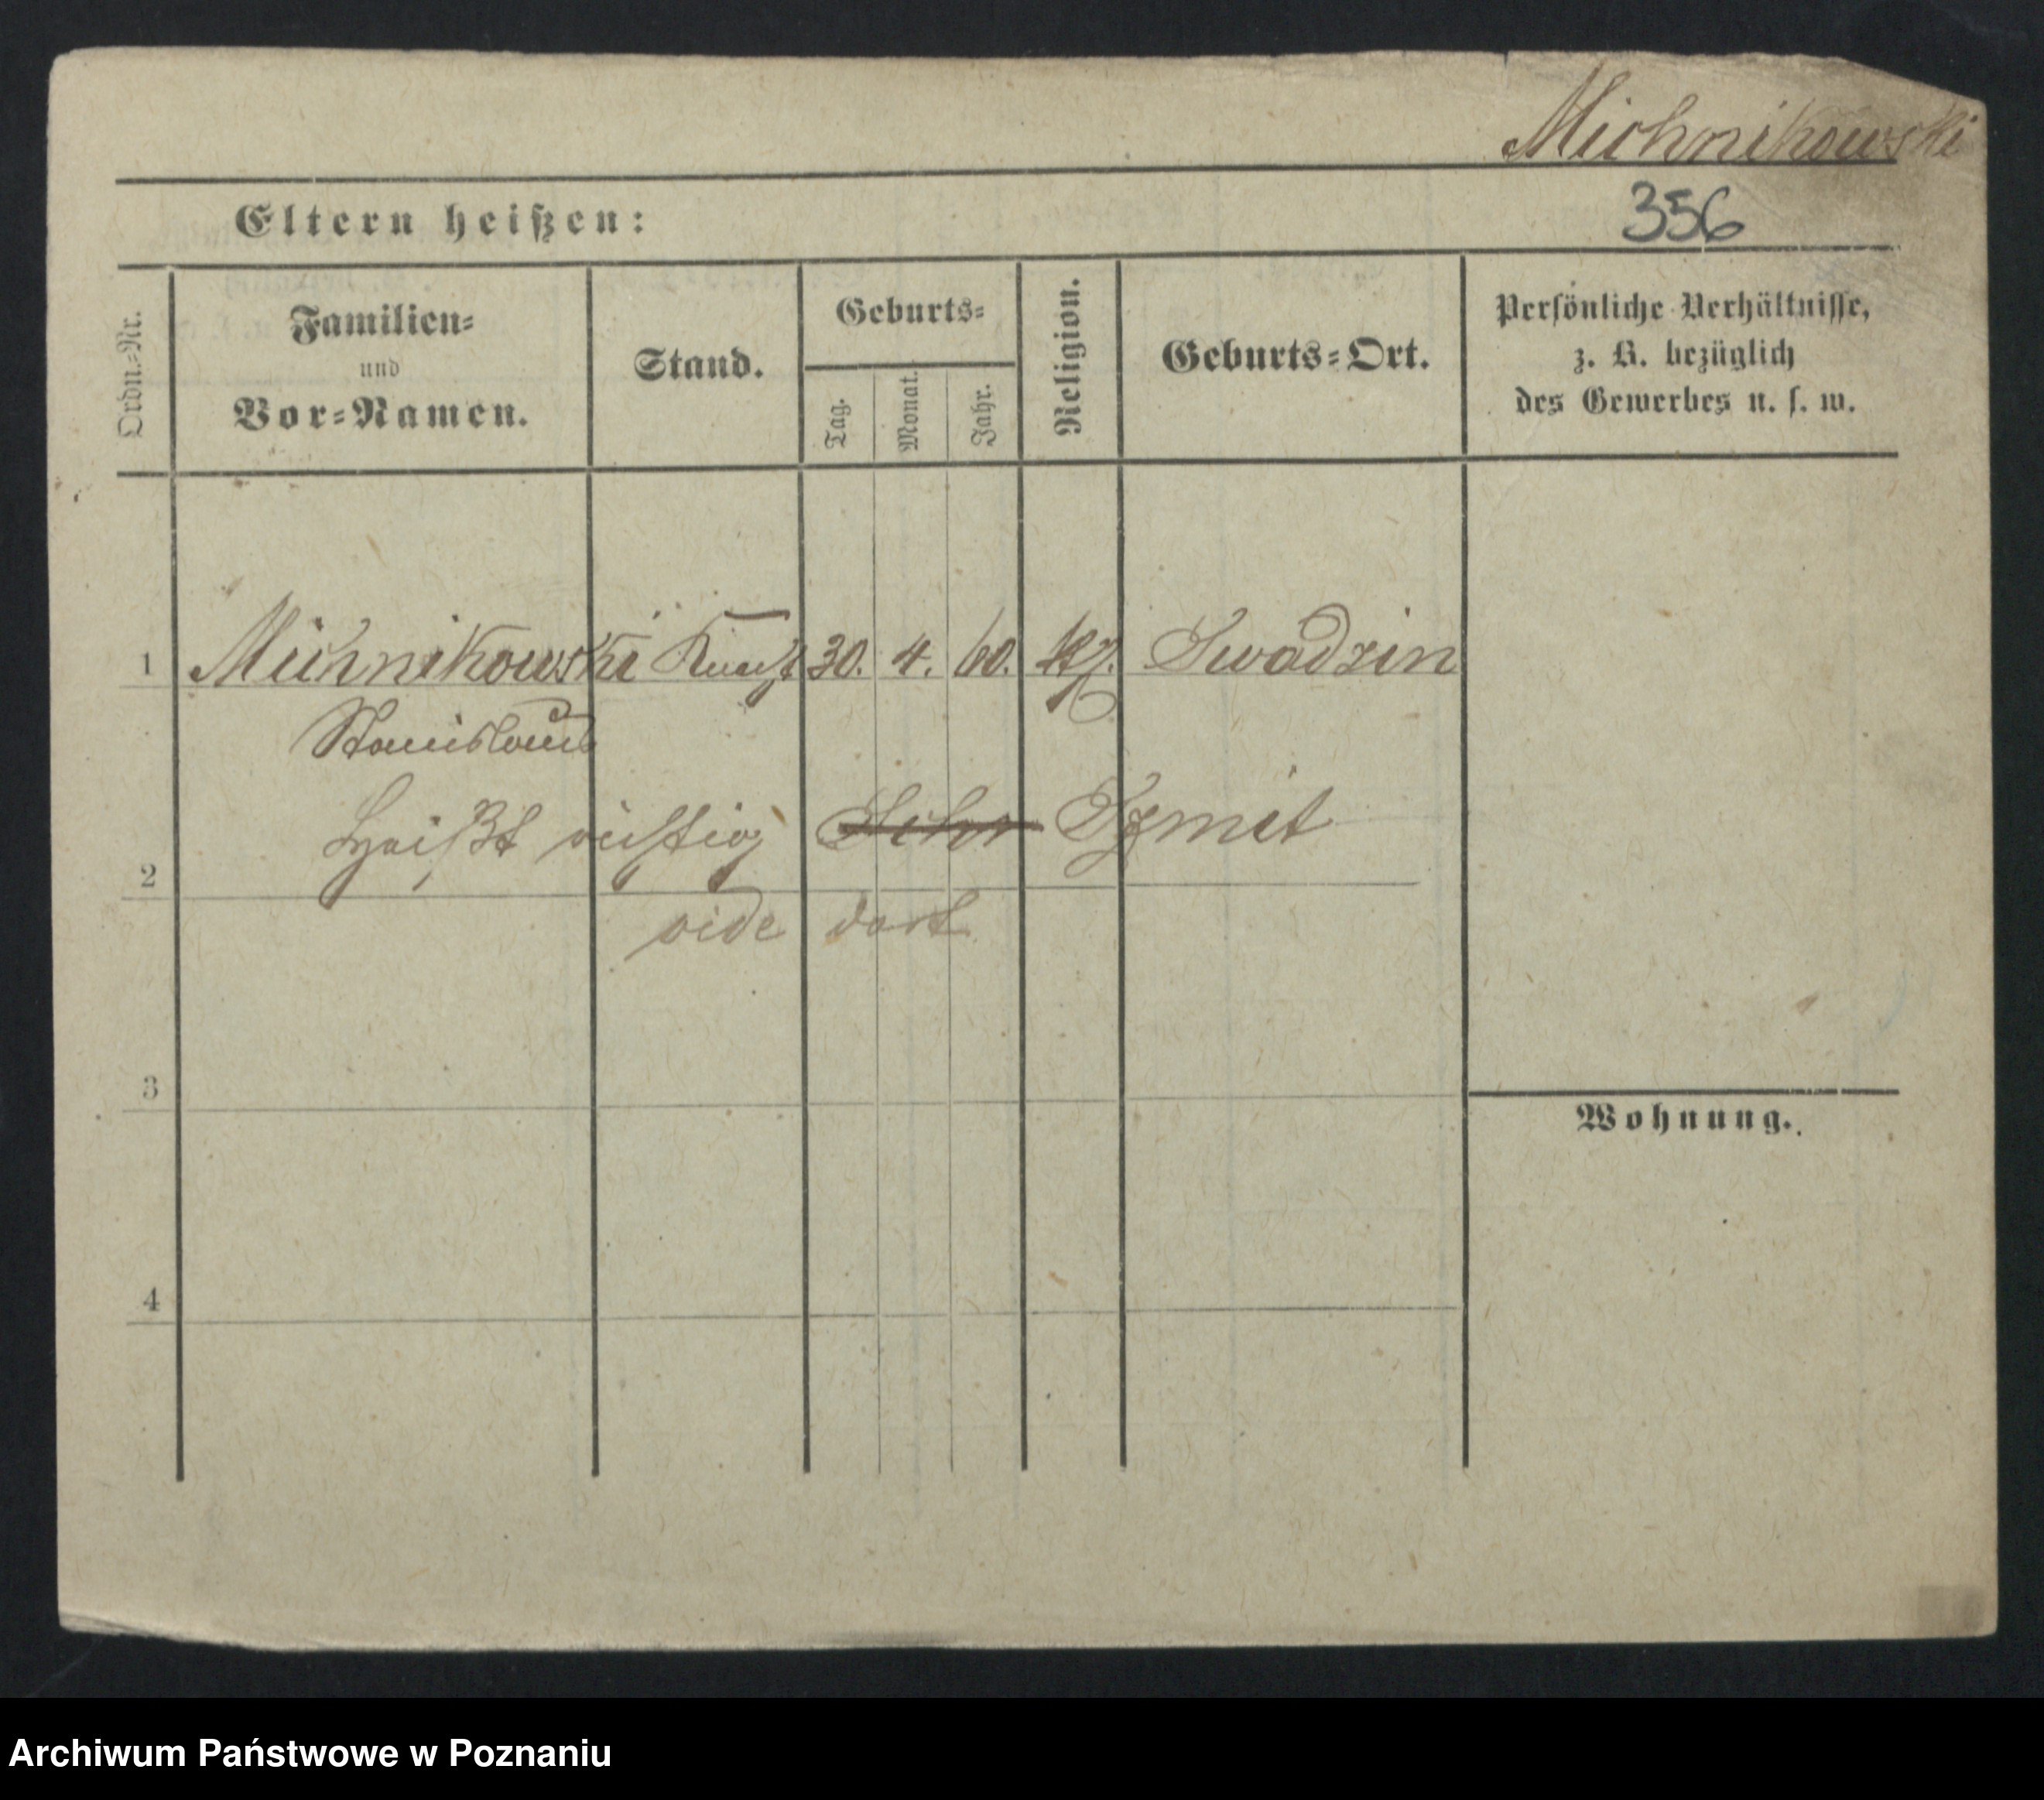 Michnikowski
356
Eltern heißen:
Ordn.-Nr.
Familien-
und
Vor-Namen.
Stand.
Geburts-
Tag.
Monat.
Jahr.
Religion.
Geburts-Ort.
Persönliche Verhältnisse,
z. B. bezüglich
des Gewerbes u. s. w.
1 Michnikowski Knecht 30. 4. 60. Swadzin
Stanislaus
2 Heißt richtig Schm Szmit
vide dort
3
Wohnung.
4
Archiwum Państwowe w Poznaniu